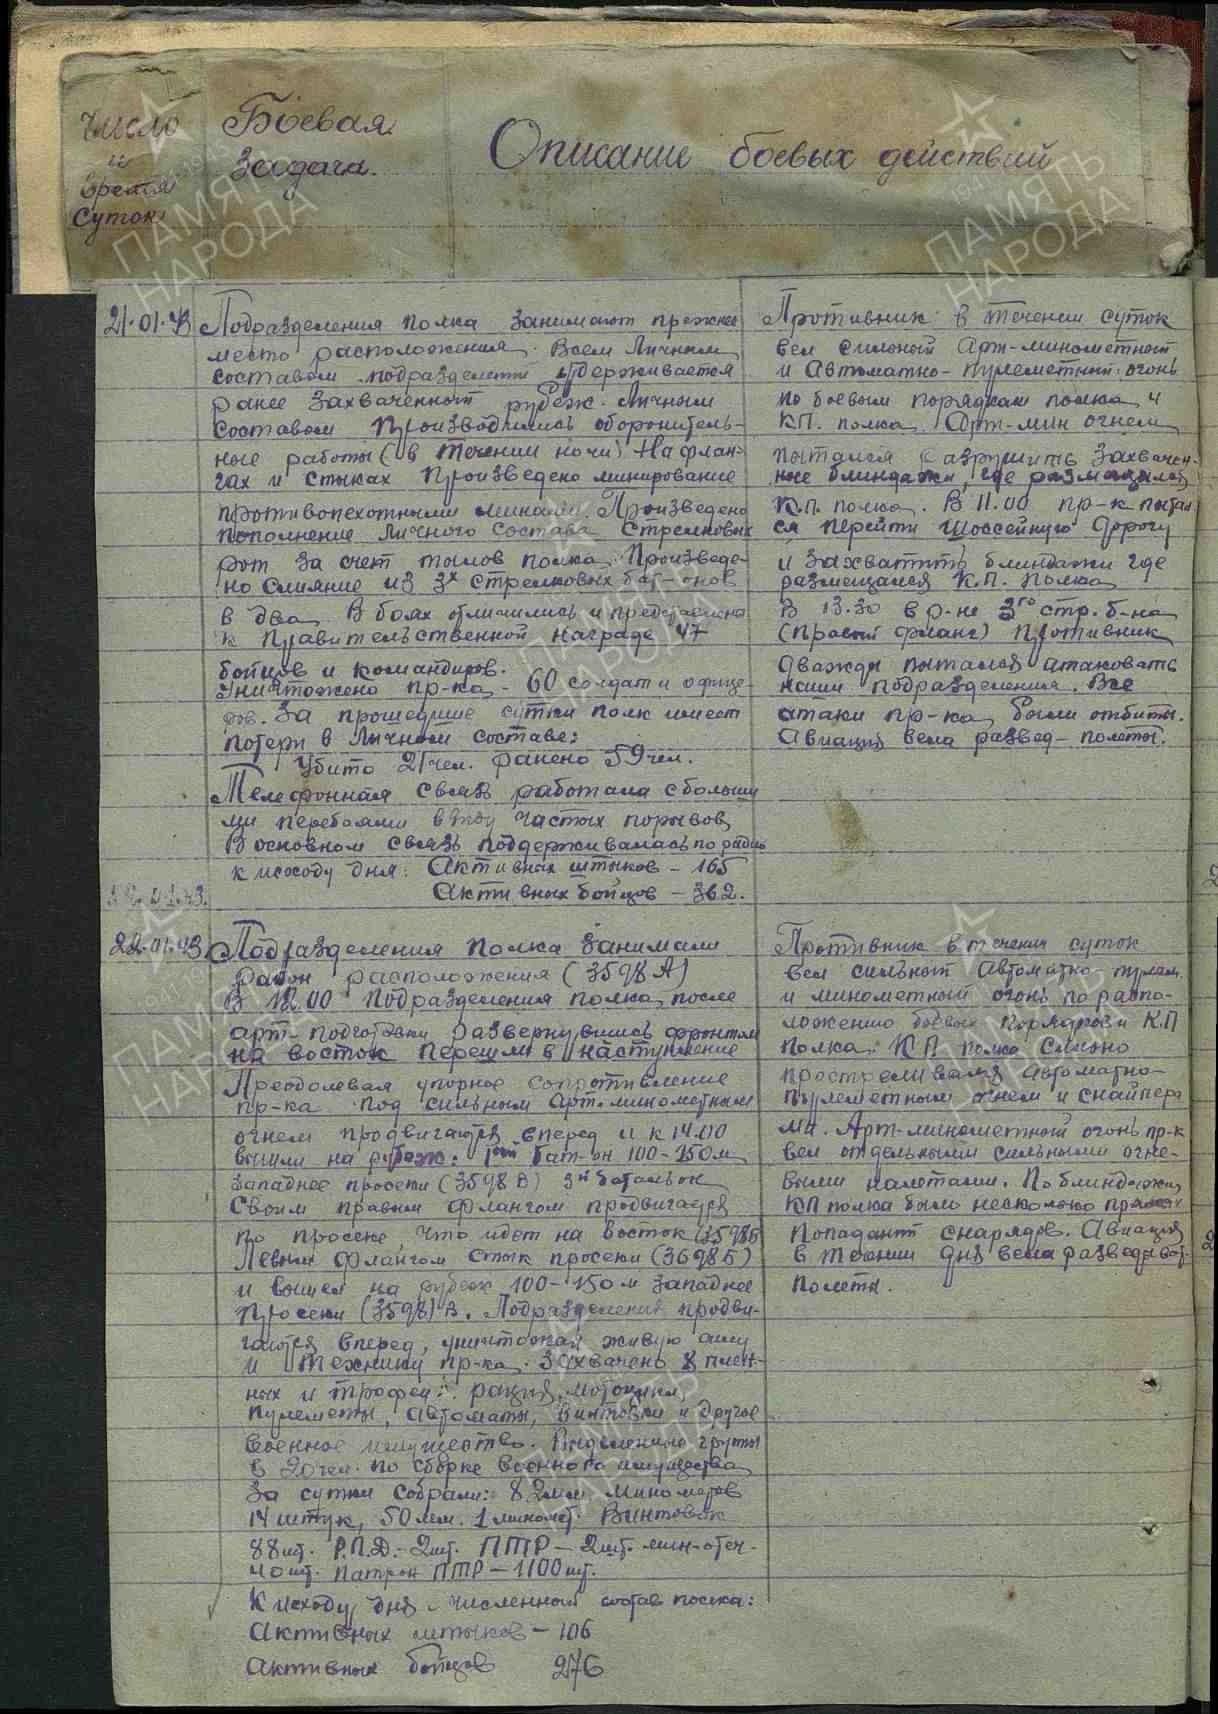 Число
и
время
суток
Боевая
задача.
Описание боевых действий
21.01.43
Подразделения полка занимают прежнее
место расположения. Всем личным
составом подразделений удерживается
ранее захваченный рубеж. Личным
составом производились оборонитель-
ные работы (в течении ночи) На флан-
гах и стыках произведено минирование
противопехотными минами. Произведено
пополнение личного состава стрелковых
рот за счет тылов полка. Произведе-
но слияние из 3х стрелковых бат-онов
в два. В боях отличились и представлено
к правительственной награде 47
бойцов и командиров.
Уничтожено пр-ка - 60 солдат и офице-
ров. За прошедшие сутки полк имеет
потери в личном составе:
Убито 21 чел. ранено 59 чел.
Телефонная связь работала с больши
ми перебоями ввиду частых порывов
В основном связь поддерживалась по радио
к исходу дня: Активных штыков - 165
Активных бойцов - 362.
Противник в течении суток
вел сильный Арт-минометный
и Автоматно-пулеметный огонь
по боевым порядкам полка и
КП. полка. Арт-мин огнем
пытался разрушить захвачен-
ные блиндажи, где размещался
К.П. полка. В 11.00 пр-к пытал
ся перейти шоссейную дорогу
и захватить блиндажи где
размещался К.П. полка
В 13.30 в р-не 3го стр. б-на
(правый фланг) противник
дважды пытался атаковать
наши подразделения. Все
атаки пр-ка были отбиты.
Авиация вела развед-полеты.
22.01.43
Подразделения полка занимали
район расположения (3598 А)
В 12.00 подразделения полка после
арт-подготовки развернувшись фронтом
на восток перешли в наступление
Преодолевая упорное сопротивление
пр-ка под сильным арт-минометным
огнем продвигаются вперед и к 14.00
вышли на рубеж: 1ый бат-он 100-150 м
западнее просеки (3598 В) 3й батальон
своим правым флангом продвигается
по просеке, что идет на восток (3598Б
Левым флангом стык просеки (3698Б)
и вышел на рубеж 100-150 м западнее
просеки (3598) В. Подразделения продви-
гаются вперед, уничтожая живую силу
и технику пр-ка. Захвачено 8 плен-
ных и трофеи: рация, мотоцикл,
пулеметы, автоматы, винтовки и другое
военное имущество. Выделенные группы
в 20 чел. по сборке военного имущества
За сутки собрали: 82мм минометов
14 штук, 50 мм. 1 миномет. Винтовок
88 шт. Р.П.Д.-2шт. ПТР - 2шт. мин-отеч-
40 шт. патрон ПТР - 1100 шт.
К исходу дня численный состав полка:
Активных штыков - 106
Активных бойцов 276
Противник в течении суток
вел сильный автоматно пулем.
и минометный огонь по распо-
ложению боевых порядков и К.П
полка. К.П. полка сильно
простреливался автоматно-
пулеметным огнем и снайпера
ми. Арт-минометный огонь пр-к
вел отдельными сильными огне-
выми налетами. По блиндажу
КП полка было несколько прямых
попаданий снарядов. Авиация
в течении дня вела разведыват-
полеты.
ПАМЯТЬ
НАРОДА
ПАМЯТЬ
НАРОДА
ПАМЯТЬ
НАРОДА
ПАМЯТЬ
НАРОДА
ПАМЯТЬ
НАРОДА
ПАМЯТЬ
НАРОДА